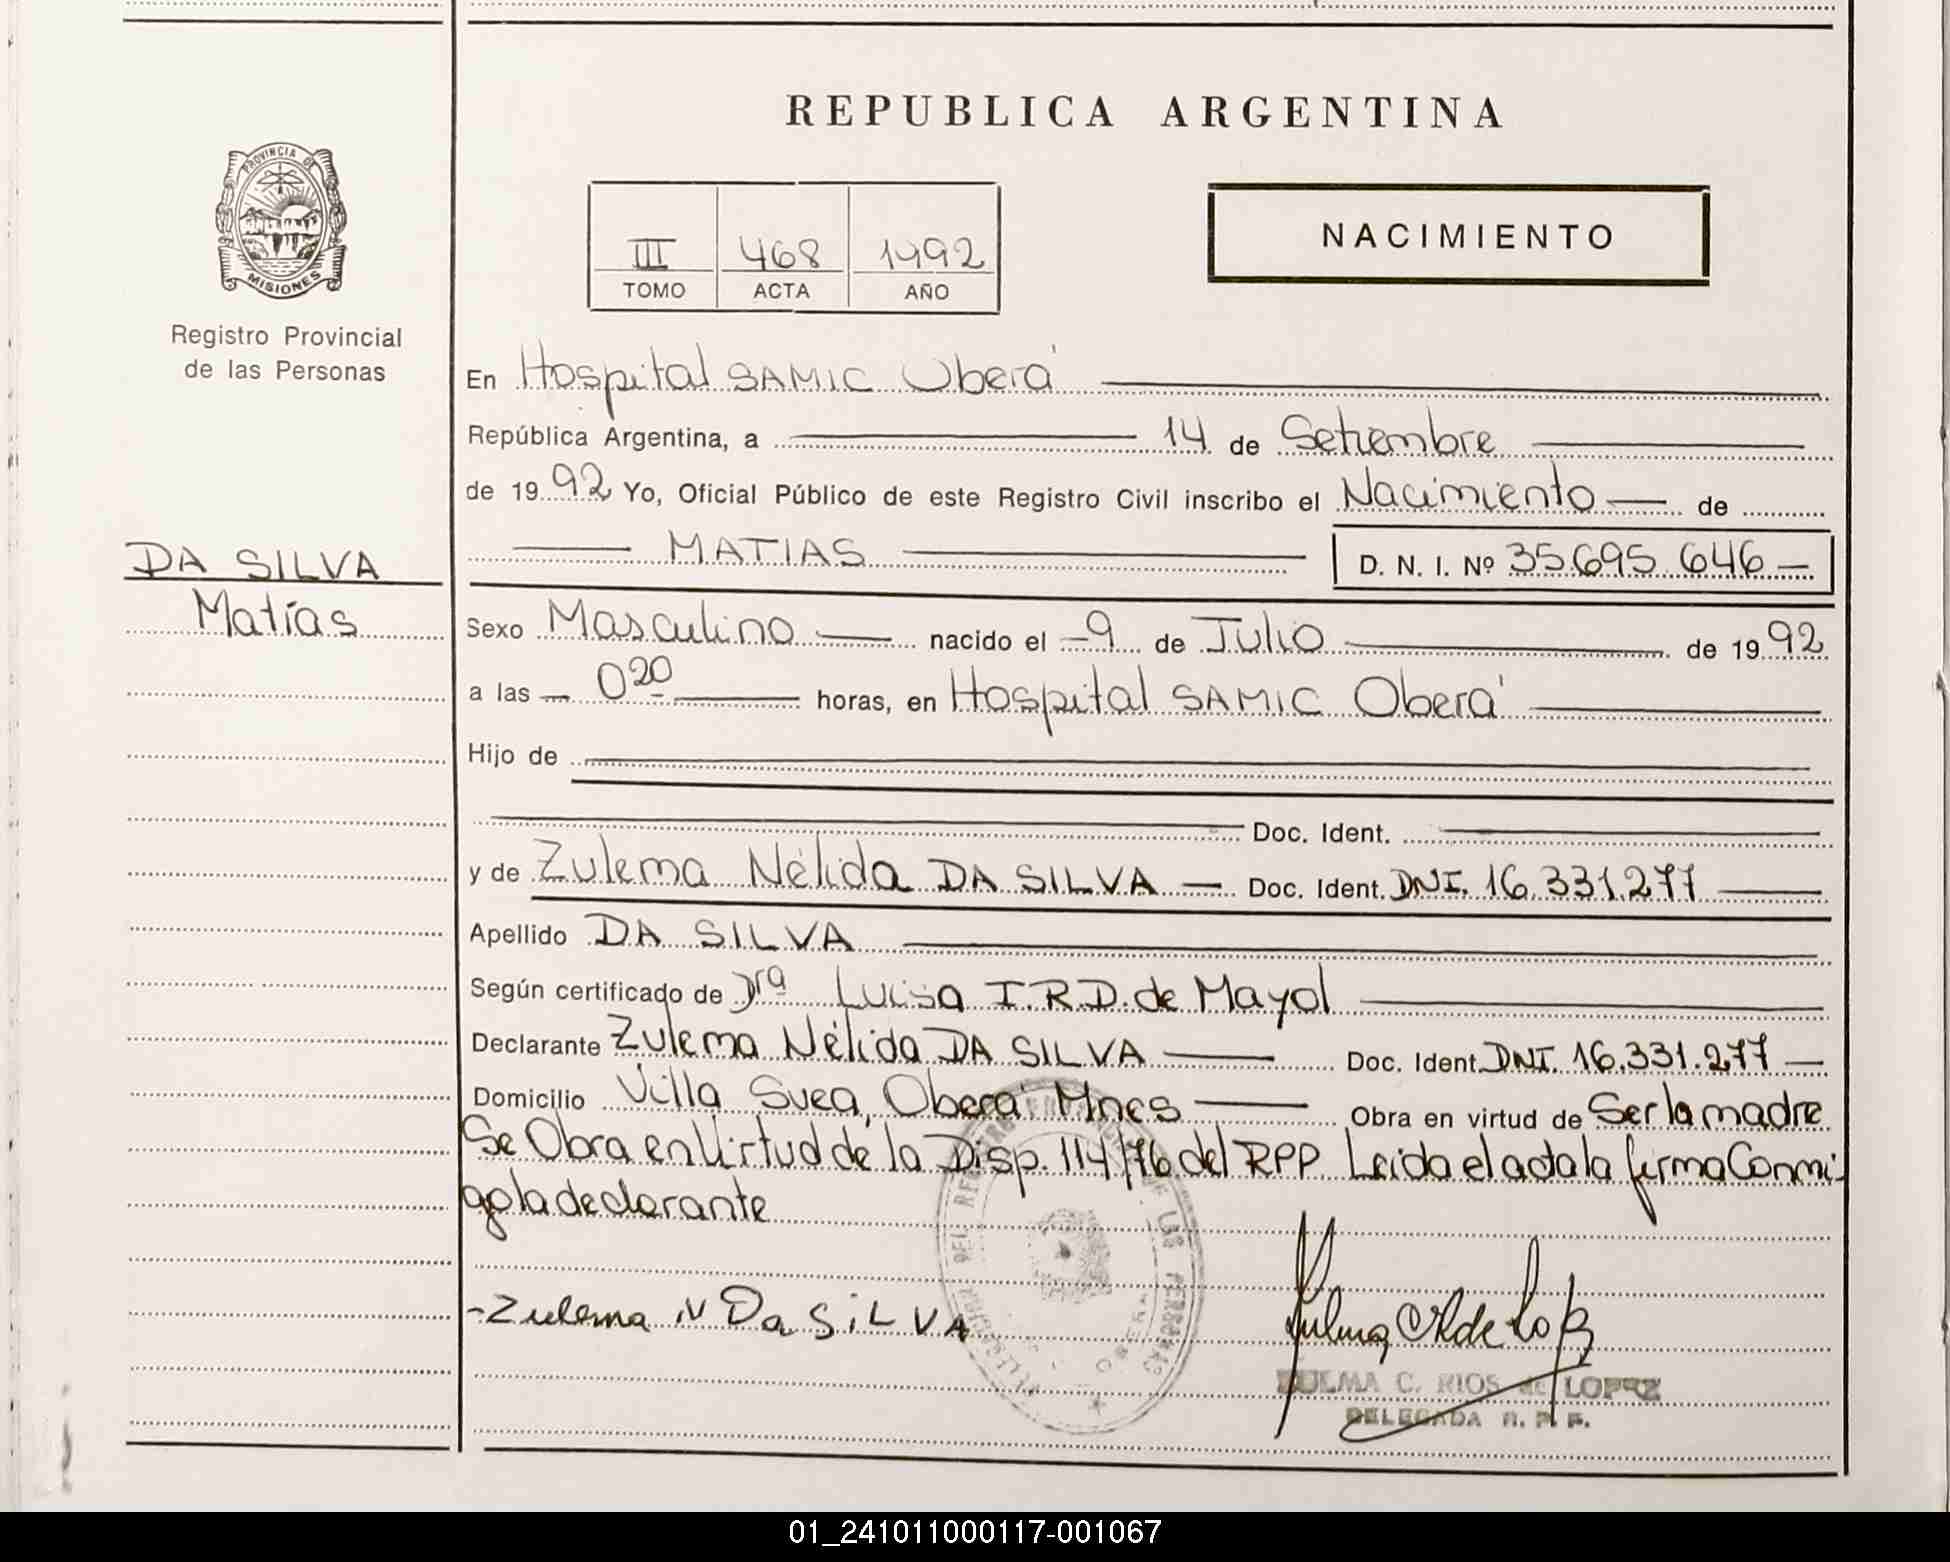 REPUBLICA ARGENTINA
PROVINCIA DE
MISIONES
Registro Provincial
de las Personas
III 468 1992
TOMO ACTA AÑO
NACIMIENTO
DA SILVA
Matías
En Hospital SAMIC Oberá
República Argentina, a 14 de Setiembre
de 1992 Yo, Oficial Público de este Registro Civil inscribo el Nacimiento de
MATIAS D. N. I. Nº 35.695.646
Sexo Masculino nacido el 9 de Julio de 1992
a las 0 20 horas, en Hospital SAMIC Oberá
Hijo de
Doc. Ident.
y de Zulema Nélida DA SILVA Doc. Ident. DNI. 16.331.277
Apellido DA SILVA
Según certificado de Dra Luisa I.R.D. de Mayol
Declarante Zulema Nélida DA SILVA Doc. Ident. DNI. 16.331.277
Domicilio Villa Svea, Oberá Mnes Obra en virtud de Ser la madre
Se Obra en Virtud de la Disp. 114/76 del RPP. Leida el acta la firma Conmi-
go la declarante
-Zulema N Da SiLVA
ZULMA C. RIOS de LOPEZ
DELEGADA R. P. P.
01_241011000117-001067